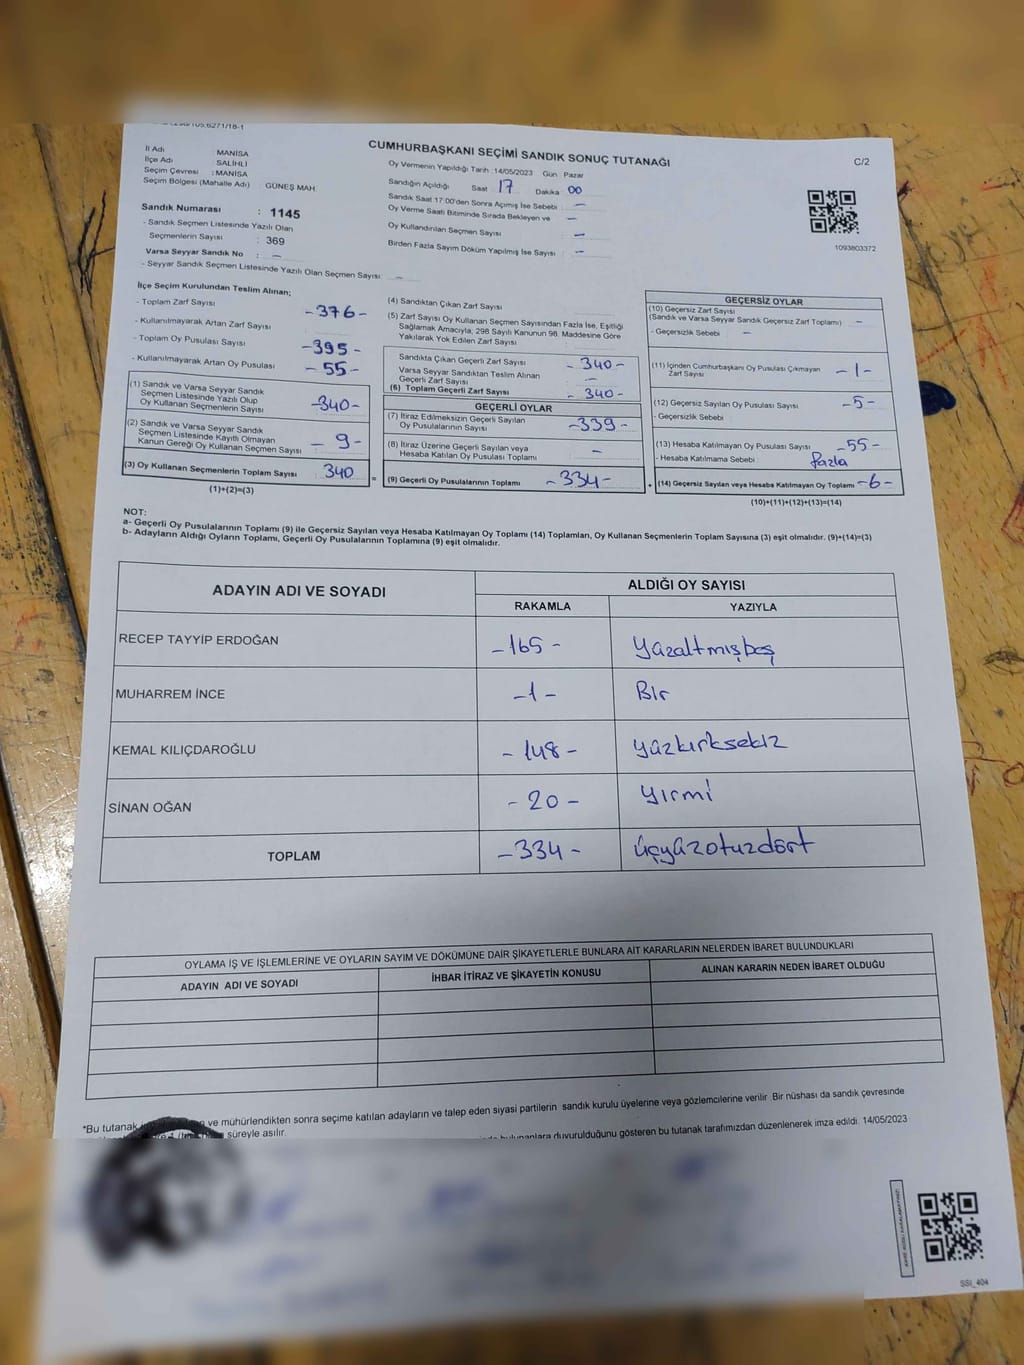 CUMHURBAŞKANI SEÇİMİ SANDIK SONUÇ TUTANAĞI
C/2
İl Adı : MANİSA
İlçe Adı : SALİHLİ
Seçim Çevresi : MANİSA
Seçim Bölgesi (Mahalle Adı) GÜNEŞ MAH.
Sandık Numarası : 1145
- Sandık Seçmen Listesinde Yazılı Olan
Seçmenlerin Sayısı : 369
Varsa Seyyar Sandık No : -
- Seyyar Sandık Seçmen Listesinde Yazılı Olan Seçmen Sayısı : -
Oy Vermenin Yapıldığı Tarih :14/05/2023 Gün : Pazar
Sandığın Açıldığı Saat 17 Dakika 00
Sandık Saat 17:00'den Sonra Açılmış İse Sebebi : -
Oy Verme Saati Bitiminde Sırada Bekleyen ve : -
Oy Kullandırılan Seçmen Sayısı : -
Birden Fazla Sayım Döküm Yapılmış İse Sayısı : -
1093803372
İlçe Seçim Kurulundan Teslim Alınan;
- Toplam Zarf Sayısı -376-
- Kullanılmayarak Artan Zarf Sayısı
- Toplam Oy Pusulası Sayısı -395-
- Kullanılmayarak Artan Oy Pusulası -55-
(1) Sandık ve Varsa Seyyar Sandık
Seçmen Listesinde Yazılı Olup
Oy Kullanan Seçmenlerin Sayısı -340-
(2) Sandık ve Varsa Seyyar Sandık
Seçmen Listesinde Kayıtlı Olmayan
Kanun Gereği Oy Kullanan Seçmen Sayısı - 9 -
(3) Oy Kullanan Seçmenlerin Toplam Sayısı 340
(1)+(2)=(3)
(4) Sandıktan Çıkan Zarf Sayısı
(5) Zarf Sayısı Oy Kullanan Seçmen Sayısından Fazla İse, Eşitliği
Sağlamak Amacıyla, 298 Sayılı Kanunun 98. Maddesine Göre
Yakılarak Yok Edilen Zarf Sayısı
Sandıkta Çıkan Geçerli Zarf Sayısı - 340-
Varsa Seyyar Sandıktan Teslim Alınan
Geçerli Zarf Sayısı -
(6) Toplam Geçerli Zarf Sayısı - 340-
GEÇERLİ OYLAR
(7) İtiraz Edilmeksizin Geçerli Sayılan
Oy Pusulalarının Sayısı -339-
(8) İtiraz Üzerine Geçerli Sayılan veya
Hesaba Katılan Oy Pusulası Toplamı -
= (9) Geçerli Oy Pusulalarının Toplamı -334-
GEÇERSİZ OYLAR
(10) Geçersiz Zarf Sayısı
(Sandık ve Varsa Seyyar Sandık Geçersiz Zarf Toplamı) -
- Geçersizlik Sebebi : -
(11) İçinden Cumhurbaşkanı Oy Pusulası Çıkmayan
Zarf Sayısı -1-
(12) Geçersiz Sayılan Oy Pusulası Sayısı -5-
- Geçersizlik Sebebi :
(13) Hesaba Katılmayan Oy Pusulası Sayısı -55-
- Hesaba Katılmama Sebebi : fazla
+ (14) Geçersiz Sayılan veya Hesaba Katılmayan Oy Toplamı -6-
(10)+(11)+(12)+(13)=(14)
NOT:
a- Geçerli Oy Pusulalarının Toplamı (9) ile Geçersiz Sayılan veya Hesaba Katılmayan Oy Toplamı (14) Toplamları, Oy Kullanan Seçmenlerin Toplam Sayısına (3) eşit olmalıdır. (9)+(14)=(3)
b- Adayların Aldığı Oyların Toplamı, Geçerli Oy Pusulalarının Toplamına (9) eşit olmalıdır.
ADAYIN ADI VE SOYADI ALDIĞI OY SAYISI
RAKAMLA YAZIYLA
RECEP TAYYİP ERDOĞAN -165- yüzaltmışbeş
MUHARREM İNCE -1- Bir
KEMAL KILIÇDAROĞLU -148- yüzkırksekiz
SİNAN OĞAN -20- yirmi
TOPLAM -334- üçyüzotuzdört
OYLAMA İŞ VE İŞLEMLERİNE VE OYLARIN SAYIM VE DÖKÜMÜNE DAİR ŞİKAYETLERLE BUNLARA AİT KARARLARIN NELERDEN İBARET BULUNDUKLARI
ADAYIN ADI VE SOYADI İHBAR İTİRAZ VE ŞİKAYETİN KONUSU ALINAN KARARIN NEDEN İBARET OLDUĞU
*Bu tutanak ve mühürlendikten sonra seçime katılan adayların ve talep eden siyasi partilerin sandık kurulu üyelerine veya gözlemcilerine verilir. Bir nüshası da sandık çevresinde
süreyle asılır.
duyurulduğunu gösteren bu tutanak tarafımızdan düzenlenerek imza edildi. 14/05/2023
SSİ_404